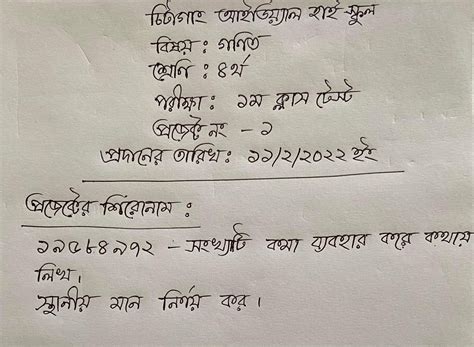 চিটাগাং আইডিয়্যাল হাই স্কুল
বিষয় : গণিত
শ্রেণি : ৪র্থ
পরীক্ষা : ১ম ক্লাস টেস্ট
প্রজেক্ট নং - ১
প্রদানের তারিখ : ১১/২/২০২২ ইং
প্রজেক্টের শিরোনাম :
১৯৫৮৪৯৭২ - সংখ্যাটি কমা ব্যবহার করে কথায়
লিখ।
স্থানীয় মান নির্ণয় কর।